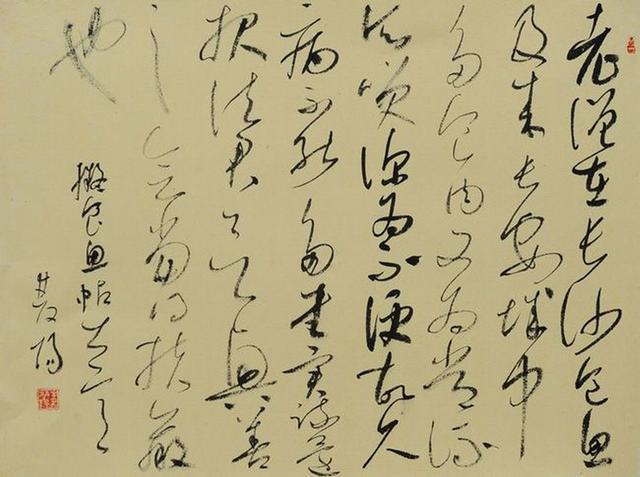 老僧在長沙食魚
及來長安城中
多食肉又為常流
所笑深為不便故久
病不能多書實疏還
報諸君欲興善
之會當得扶羸
也
擬食魚帖